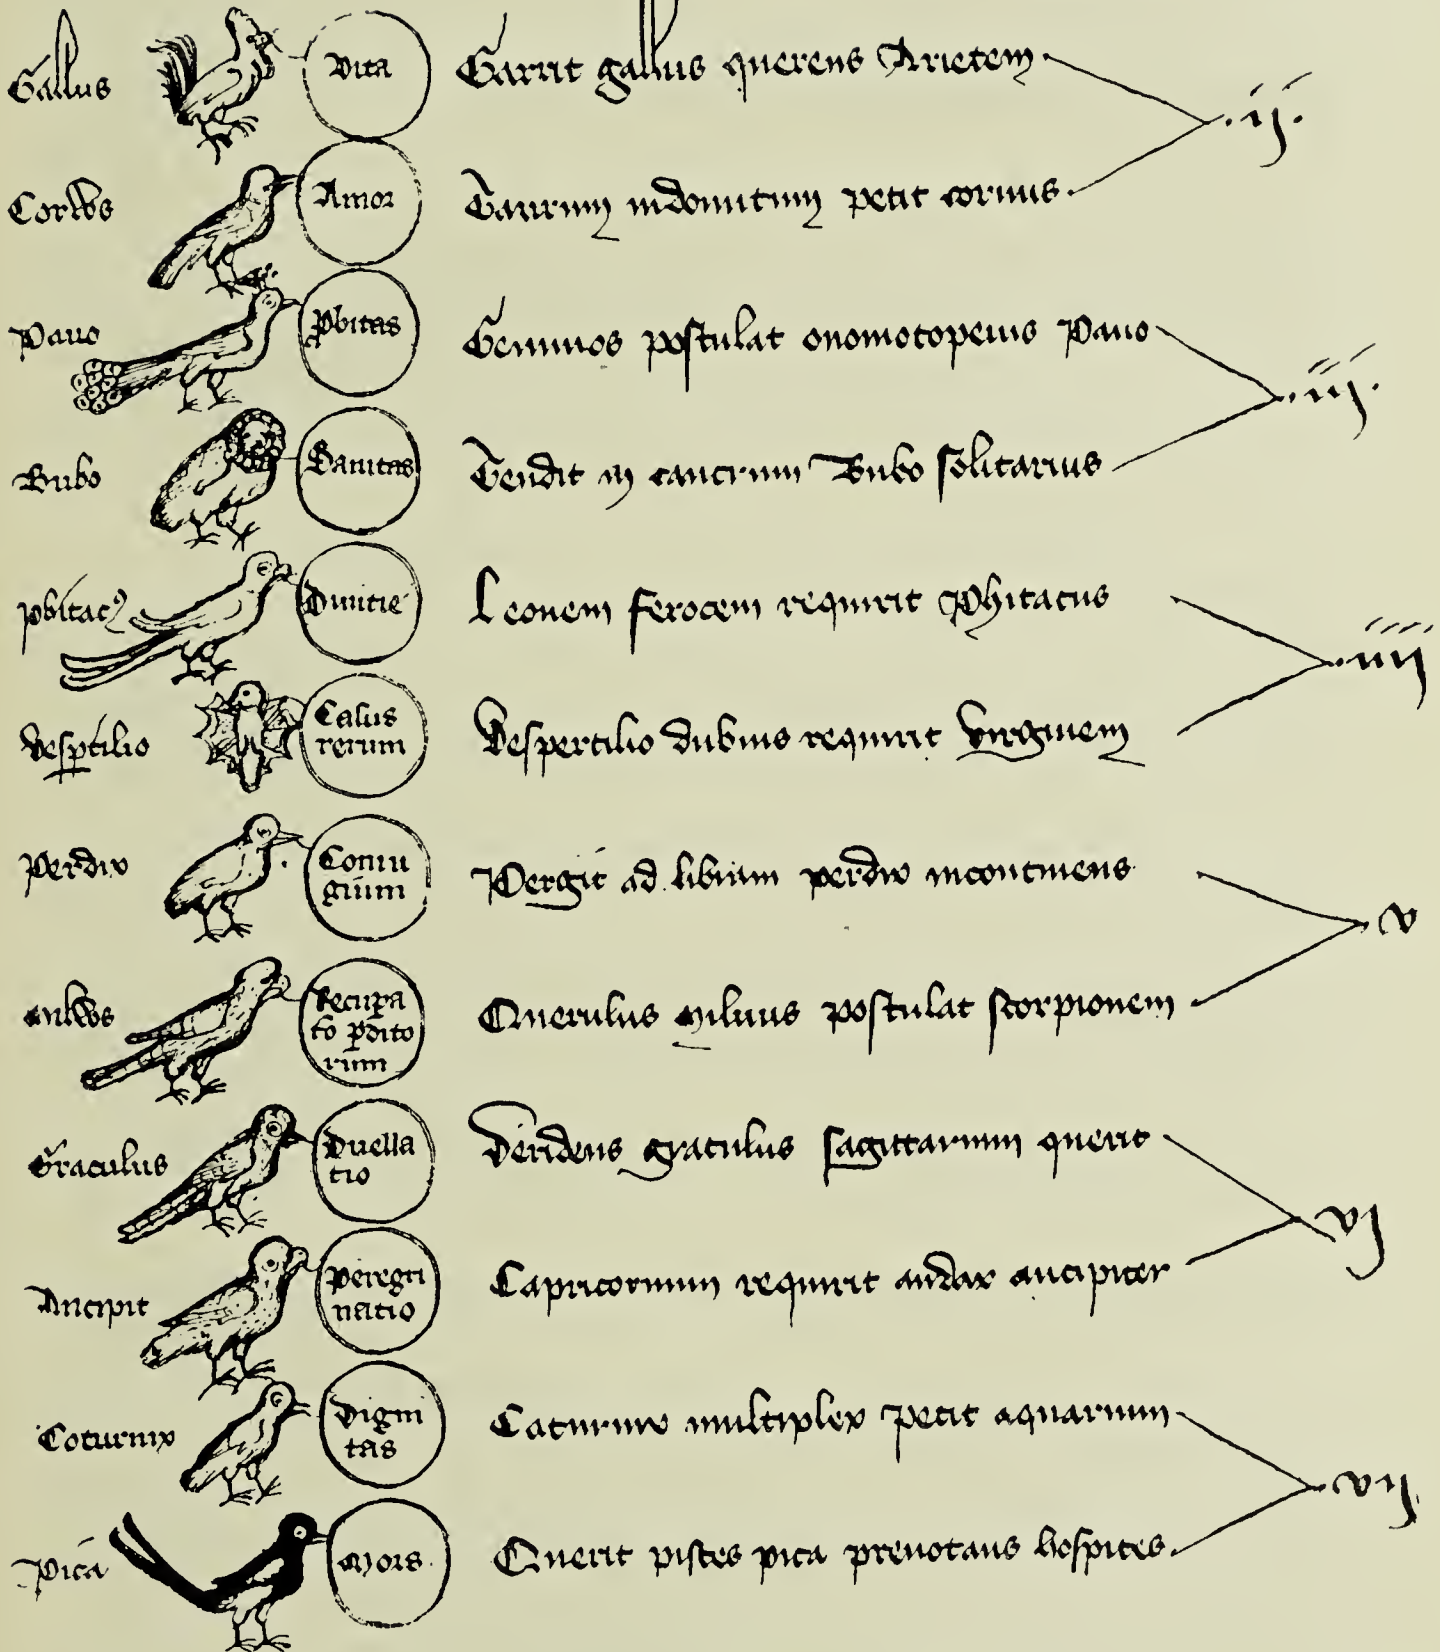 Gallus
Vita
Garrit gallus querens Arietem
.ij.
Corvus
Amor
Taurum indomitum petit corvus
Pavo
Pbitas
Geminos postulat onomotopeius Pavo
.iij.
Bubo
Sanitas
Tendit in cancrum Bubo solitarius
phitac⁹
Divitie
Leonem ferocem requirit Phitacus
.iiij
vesptilio
Casus
rerum
Vespertilio dubius requirit virginem
Perdix
Coniu
gium
Pergit ad libram perdix incontinens
v
milvus
Recupa
to pdito
rum
Querulus milvus postulat scorpionem
Graculus
Duella
tio
Deridens graculus sagittarium querit
vj
Ancipit
peregri
natio
Capricornum requirit audax ancipiter
Coturnix
Digni
tas
Caturnix multiplex petit aquarium
vij
Pica
Mors
Querit pisces pica prenotans hospites